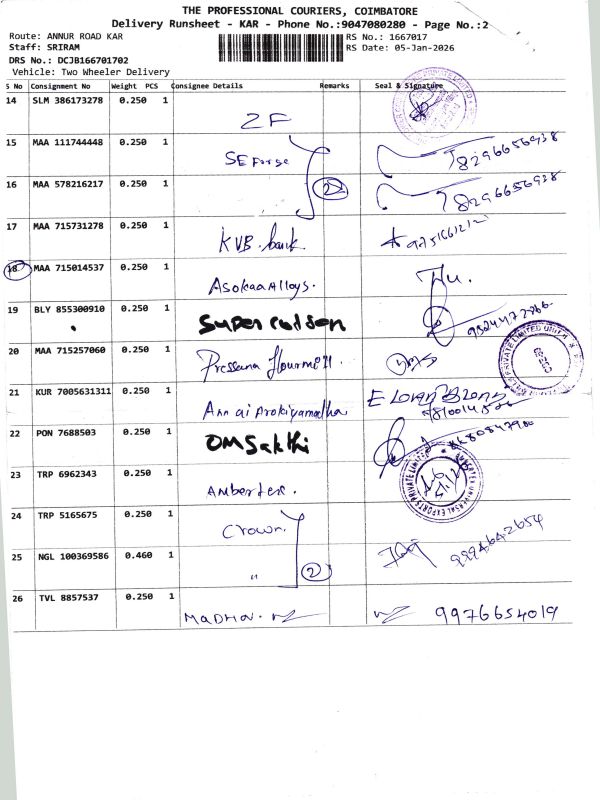 THE PROFESSIONAL COURIERS, COIMBATORE
Delivery Runsheet - KAR - Phone No.:9047080280 - Page No.:2
Route: ANNUR ROAD KAR
RS No.: 1667017
Staff: SRIRAM
RS Date: 05-Jan-2026
DRS No.: DCJB166701702
Vehicle: Two Wheeler Delivery
S No Consignment No Weight PCS Consignee Details Remarks Seal & Signature
14 SLM 386173278 0.250 1 ZF
15 MAA 111744448 0.250 1 SE Forge 8296656938
16 MAA 578216217 0.250 1 2 8296656938
17 MAA 715731278 0.250 1 KVB. bank
18 MAA 715014537 0.250 1 Asokaa Alloys.
19 BLY 855300910 0.250 1 Super
20 MAA 715257060 0.250 1
21 KUR 7005631311 0.250 1
22 PON 7688503 0.250 1 OMSakthi
23 TRP 6962343 0.250 1 Ambertex.
24 TRP 5165675 0.250 1 Crown
25 NGL 100369586 0.460 1 " 2 9994642654
26 TVL 8857537 0.250 1 MADHav. 9976654019